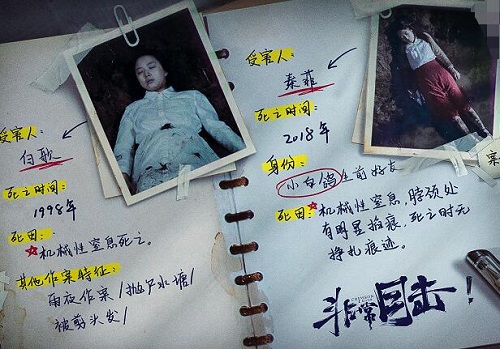 受害人：
白歌
死亡时间：
1998年
死因：
机械性窒息死亡。
其他作案特征：
雨夜作案/抛尸水塘/
被剪头发/
受害人：
秦菲
死亡时间：
2018年
身份：
小白鸽生前好友
死因：机械性窒息，脖颈处
有明显掐痕，死亡时无
挣扎痕迹。
非常目击！